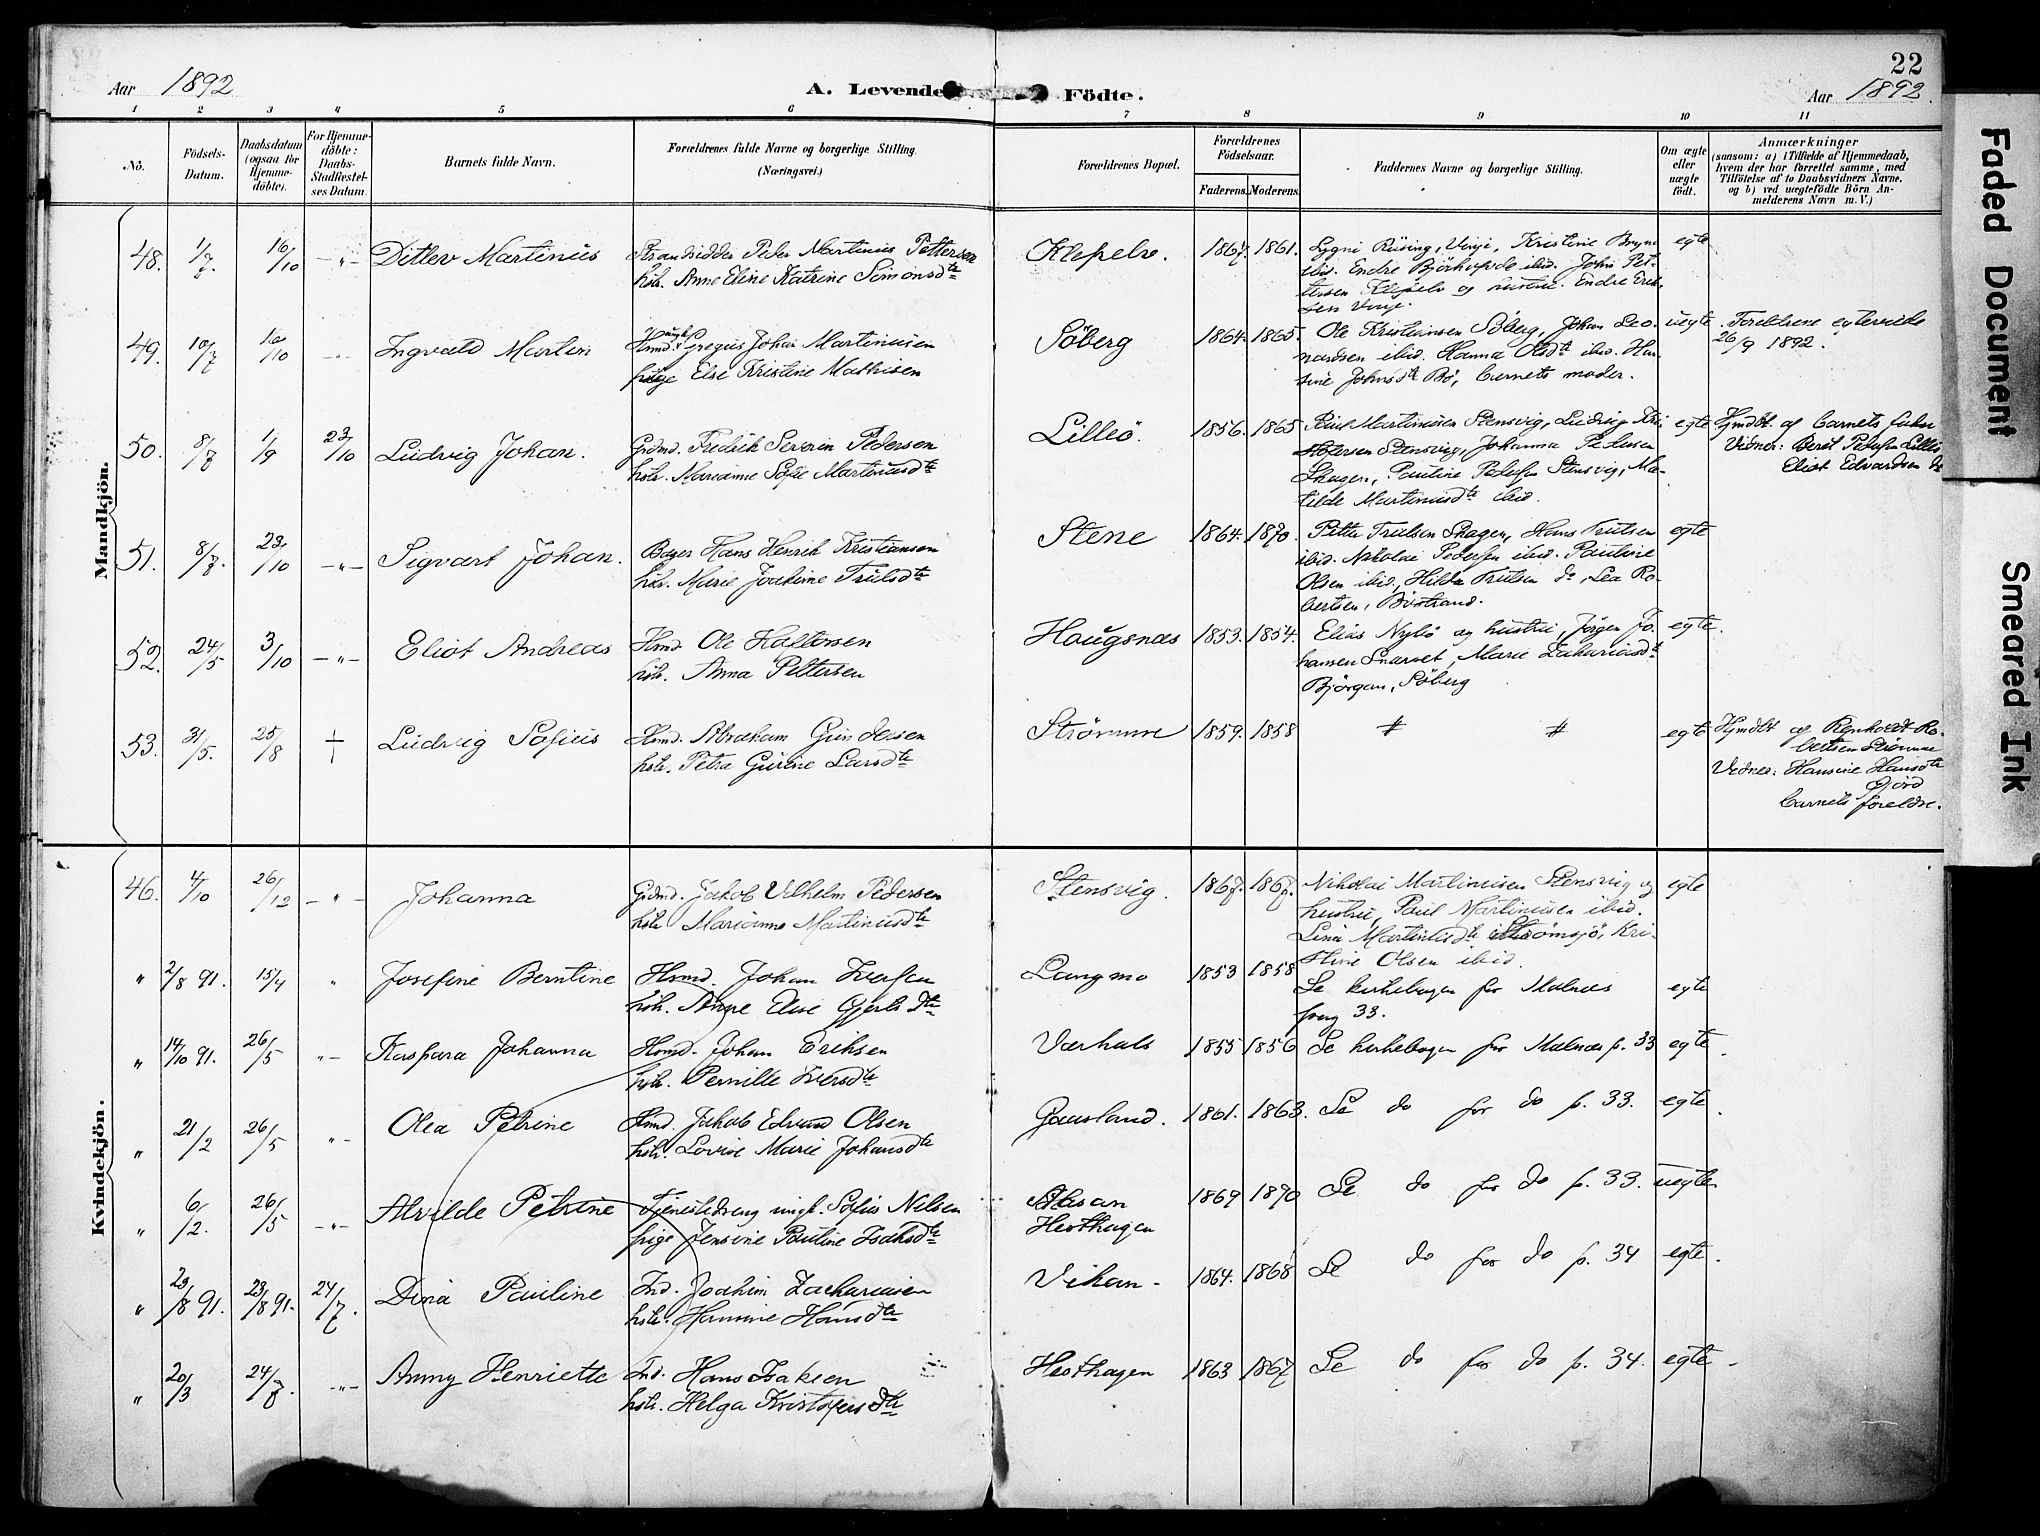 22
Aar 1892
A. Levende Födte.
Aar 1892.
1 2 3 4 5 6 7 8 9 10 11
No.
Födsels-Datum.
Daabsdatum (ogsaa for Hjemme-döbte).
For Hjemme-döbte: Daabs-Stadfæstel-ses Datum.
Barnets fulde Navn.
Forældrenes fulde Navne og borgerlige Stilling.
(Næringsvei.)
Forældrenes Bopæl.
Forældrenes Födselsaar.
Faderens. Moderens.
Faddernes Navne og borgerlige Stilling.
Om ægte eller uægte født.
Anmærkninger
(saasom: a) i Tilfælde af Hjemmedaab,
hvem der har forrettet samme, med
Tilföielse af to Daabsvidners Navne.
og b) ved uægtefödte Börn An-
melderens Navn m. V.)
Mandkjön.
48. 1/7. 16/10 -"- Ditlev Martinus
Strandsidder Peder Martinus Pettersen
hstr. Anne Eline Katrine Simonsdtr
Klepelv. 1867. 1861.
Vinje, Kristine Bryn
ibid. Endre ibid. John Pet-
tersen Klepelv og hustru. Endre Erik-
sen Vinje.
egte
49. 10/7 16/10 -"- Ingvald Martin
Ungk. Gregus Johan Martinusen
pige Else Kristine Mathisen
Söberg 1864. 1865.
Ole Kristiansen Söberg, Johan Leo-
nardsen ibid. Hanna Olsdtr ibid. Han-
sine Johnsdtr Bö, barnets moder.
uegte
Foreldrene egteviede
26/9 1892.
50. 8/7 1/9 23/10 Ludvig Johan.
Grdmd. Fredrik Severin Pedersen
hstr. Marianne Sofie Martinusdtr
Lilleö. 1856. 1865
Paul Martinusen Stensvig, Ludvig Kri-
stofersen Stensvig, Johanna Petersen
Skagen, Pauline Pedersen Stensvig, Ma-
tilde Martinusdtr ibid.
egte
Hjmdbt. af barnets fader
Vidner: Berit Pedersen Lilleö
Eliot Edvardsen do
51. 8/7. 23/10 -"- Sigvart Johan.
Bager Hans Henrik Kristiansen
hstr. Marie Joakime Trulsdtr
Stene 1864. 1870.
Petter Trulsen Skagen, Hans Trulsen
ibid. Nikolai Pedersen ibid. Pauline
Olsen ibid, Hilda Trulsen do, Lea Ro-
bertsen, Böstrand.
egte
52. 24/5 3/10 -"- Eliot Andreas
Hmd. Ole Hoftersen
hstr. Anna Pettersen
Haugsnæs 1853. 1854.
Elias Nylö og hustru, Jörgen Jo-
hansen Snarset, Marie Zakariasdtr
Björgan, Söberg
egte.
53. 31/5. 25/8 † Ludvig Sofius
Hmd. Abraham Gundersen
hstr. Petra Gurine Larsdtr
Strömme 1859. 1858 # #
egte
Hjmdbt af Renholdt Ro-
bertsen Strömme
Vidner: Hansine Hansdtr
Fjörd
barnets foreldre.
Kvindekjön.
46. 4/10 26/12 -"- Johanna
Grdmd. Jakob Vilhelm Pedersen
hstr Marianna Martinusdtr
Stensvig. 1867. 1867.
Nikolai Martinusen Stensvig og
hustru, Paul Martinusen ibid.
Lina Martinusdtr Strömsjö, Kri-
stine Olsen ibid.
egte
" 2/8 91. 15/4 " Josefine Berntine
Hmd. Johan Iversen
hstr. Anne Else Gjertsdtr
Langmo 1853 1858
Se kirkebogen for Malnes
pag 33.
egte
" 14/10 91. 26/5 "- Kaspara Johanna
Hmd. Johan Eriksen
hstr. Pernille Iversdtr
Værhals 1855 1856
Se kirkebogen for Malnæs p. 33
egte.
" 21/2 26/5 "- Olea Petrine
Hmd. Jakob Edvard Olsen
hstr. Lovise Marie Johansdtr
Gaasland. 1861. 1863. Se do for do p. 33. egte.
" 6/2. 26/5 -"- Alvilde Petrine
Tjenestedreng ungk. Sofus Nilsen
pige Jensine Pauline Isaksdtr
Hesthagen
1869 1870 Se do for do p. 33. uegte
" 23/8 91. 23/8 91. 24/7. Dina Pauline
Ind. Joakim Zachariasen
hstr. Hansine Hansdtr
Vikan- 1864. 1868 Se do for do p. 34 egte.
" 20/3 24/7. -"- Anny Henriette
Ind. Hans Isaksen
hstr. Helga Kristofersdtr
Hesthagen 1863 1867 Se do for do p. 34. egte-
Faded Document
Smeared Ink